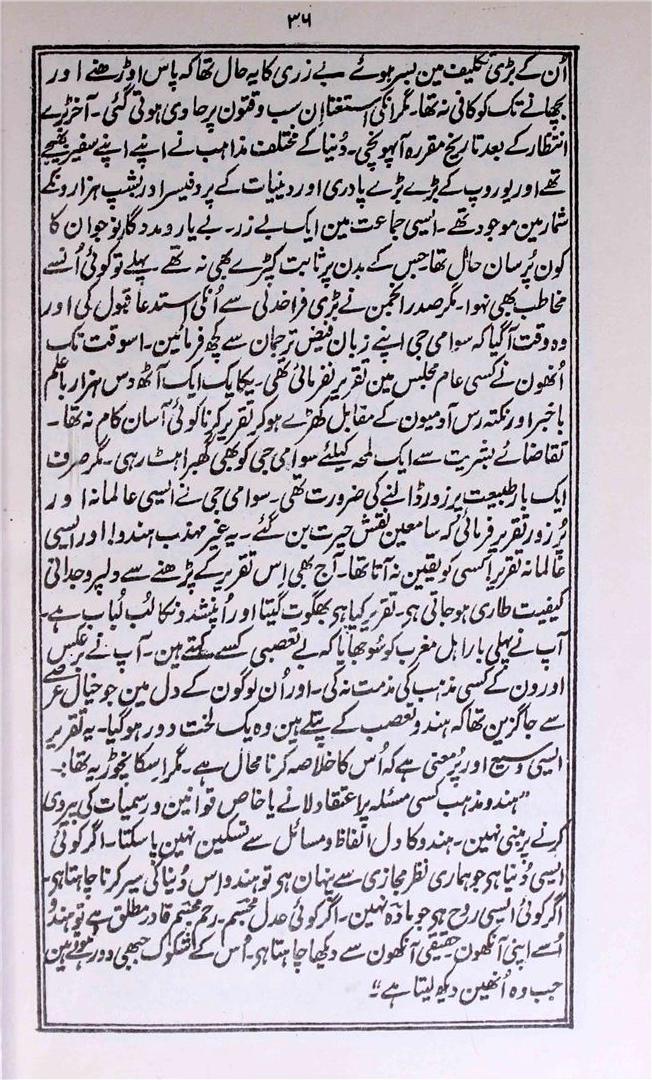 ۳۶
اُن کے بڑی تکلیف مین بسر ہوئے بے زری کا یہ حال تھا کہ پاس اوڑھنے اور
بچھانے تک کو کافی نہ تھا۔ مگر انکی استغنا اِن سب وقتون پر حاوی ہوتی گئی۔ آخر بڑے
انتظار کے بعد تاریخ مقررہ آپہونچی۔ دُنیا کے مختلف مذاہب نے اپنے اپنے سفیر بھیجے
تھے اور یوروپ کے بڑے بڑے پادری اور دینیات کے پروفیسر اور بشپ ہزارونکے
شمار مین موجود تھے۔ ایسی جماعت مین ایک بے زر۔ بے یار و مددگار نوجوان کا
کون پُرسان حال تھا جس کے بدن پر ثابت کپڑے بھی نہ تھے۔ پہلے تو کوئی اُنسے
مخاطب بھی نہوا۔ مگر صدر انجمن نے بڑی فراخدلی سے اُنکی استدعا قبول کی اور
وہ وقت آگیا کہ سوامی جی اپنے زبان فیض ترجمان سے کچھ فرمائین۔ اسوقت تک
اُنھون نے کسی عام مجلس مین تقریر نفرمائی تھی۔ یکایک ایک آٹھ دس ہزار باعلم
باخبر اور نکتہ رس آدمیون کے مقابل کھڑے ہوکر تقریر کرنا کوئی آسان کام نہ تھا۔
تقاضائے بشریت سے ایک لمحہ کیلئے سوامی جی کو بھی گھبراہٹ رہی۔ مگر صرف
ایک بار طبیعت پر زور ڈالنے کی ضرورت تھی۔ سوامی جی نے ایسی عالمانہ اور
پُرزور تقریر فرمائی کہ سامعین نقش حیرت بن گئے۔ یہ غیر مہذب ہندو! اور ایسی
عالمانہ تقریر! کسی کو یقین نہ آتا تھا۔ آج بھی اِس تقریر کے پڑھنے سے دلپر وجدانی
کیفیت طاری ہوجاتی ہی۔ تقریر کیا ہی بھگوت گیتا اور اُپنشدونکا لُب لُباب ہے۔
آپ نے پہلی بار اہل مغرب کو سُوجھایا کہ بے تعصبی کسے کہتے ہین۔ آپ نے برعکس
اورون کے کسی مذہب کی مذمت نہ کی۔ اور اُن لوگون کے دل مین جو خیال عرصے
سے جاگزین تھا کہ ہندو تعصب کے پتلے ہین وہ یک لخت دور ہوگیا۔ یہ تقریر
ایسی وسیع اور پُرمعنی ہے کہ اُس کا خلاصہ کرنا محال ہے۔ مگر اِسکا نچوڑ یہ تھا:۔
”ہندو مذہب کسی مسئلہ پر اعتقاد لانے یا خاص قوانین و رسمیات کی پیروی
کرنے پر مبنی نہین۔ ہندو کا دل الفاظ و مسائل سے تسکین نہین پاسکتا۔ اگر کوئی
ایسی دُنیا ہی جو ہماری نظر مجازی سے پنہان ہی تو ہندو اس دُنیا کی سیر کرنا چاہتا ہی۔
اگر کوئی ایسی روح ہی جو مادّہ نہین۔ اگر کوئی عدل مجسّم۔ رحم مجسّم قادر مطلق ہے تو ہندو
اُسے اپنی آنکھون حقیقی آنکھون سے دیکھا چاہتا ہی۔ اُس کے شکوک جبھی دور ہوتے ہین
جب وہ اُنھین دیکھ لیتا ہے“